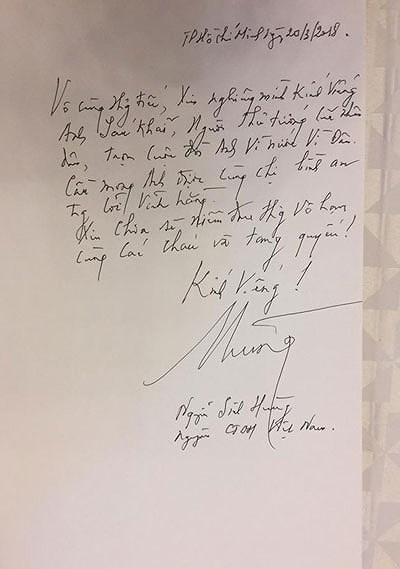 TP Hồ Chí Minh ngày 20/3/2018.
Vô cùng thg tiếc, xin nghiêng mình Kính Viếng
Anh Sáu Khải, Người Thủ tướng của nhân
dân, trọn cuộc đời Anh Vì nước Vì Dân.
Cầu mong Anh được cùng chị bình an
tg cõi Vĩnh hằng.
Xin Chia sẻ niềm đau thg vô hạn
cùng các cháu và tang quyến!
Kính Viếng!
Hùng
Nguyễn Sinh Hùng
Nguyên CTQH Việt Nam.